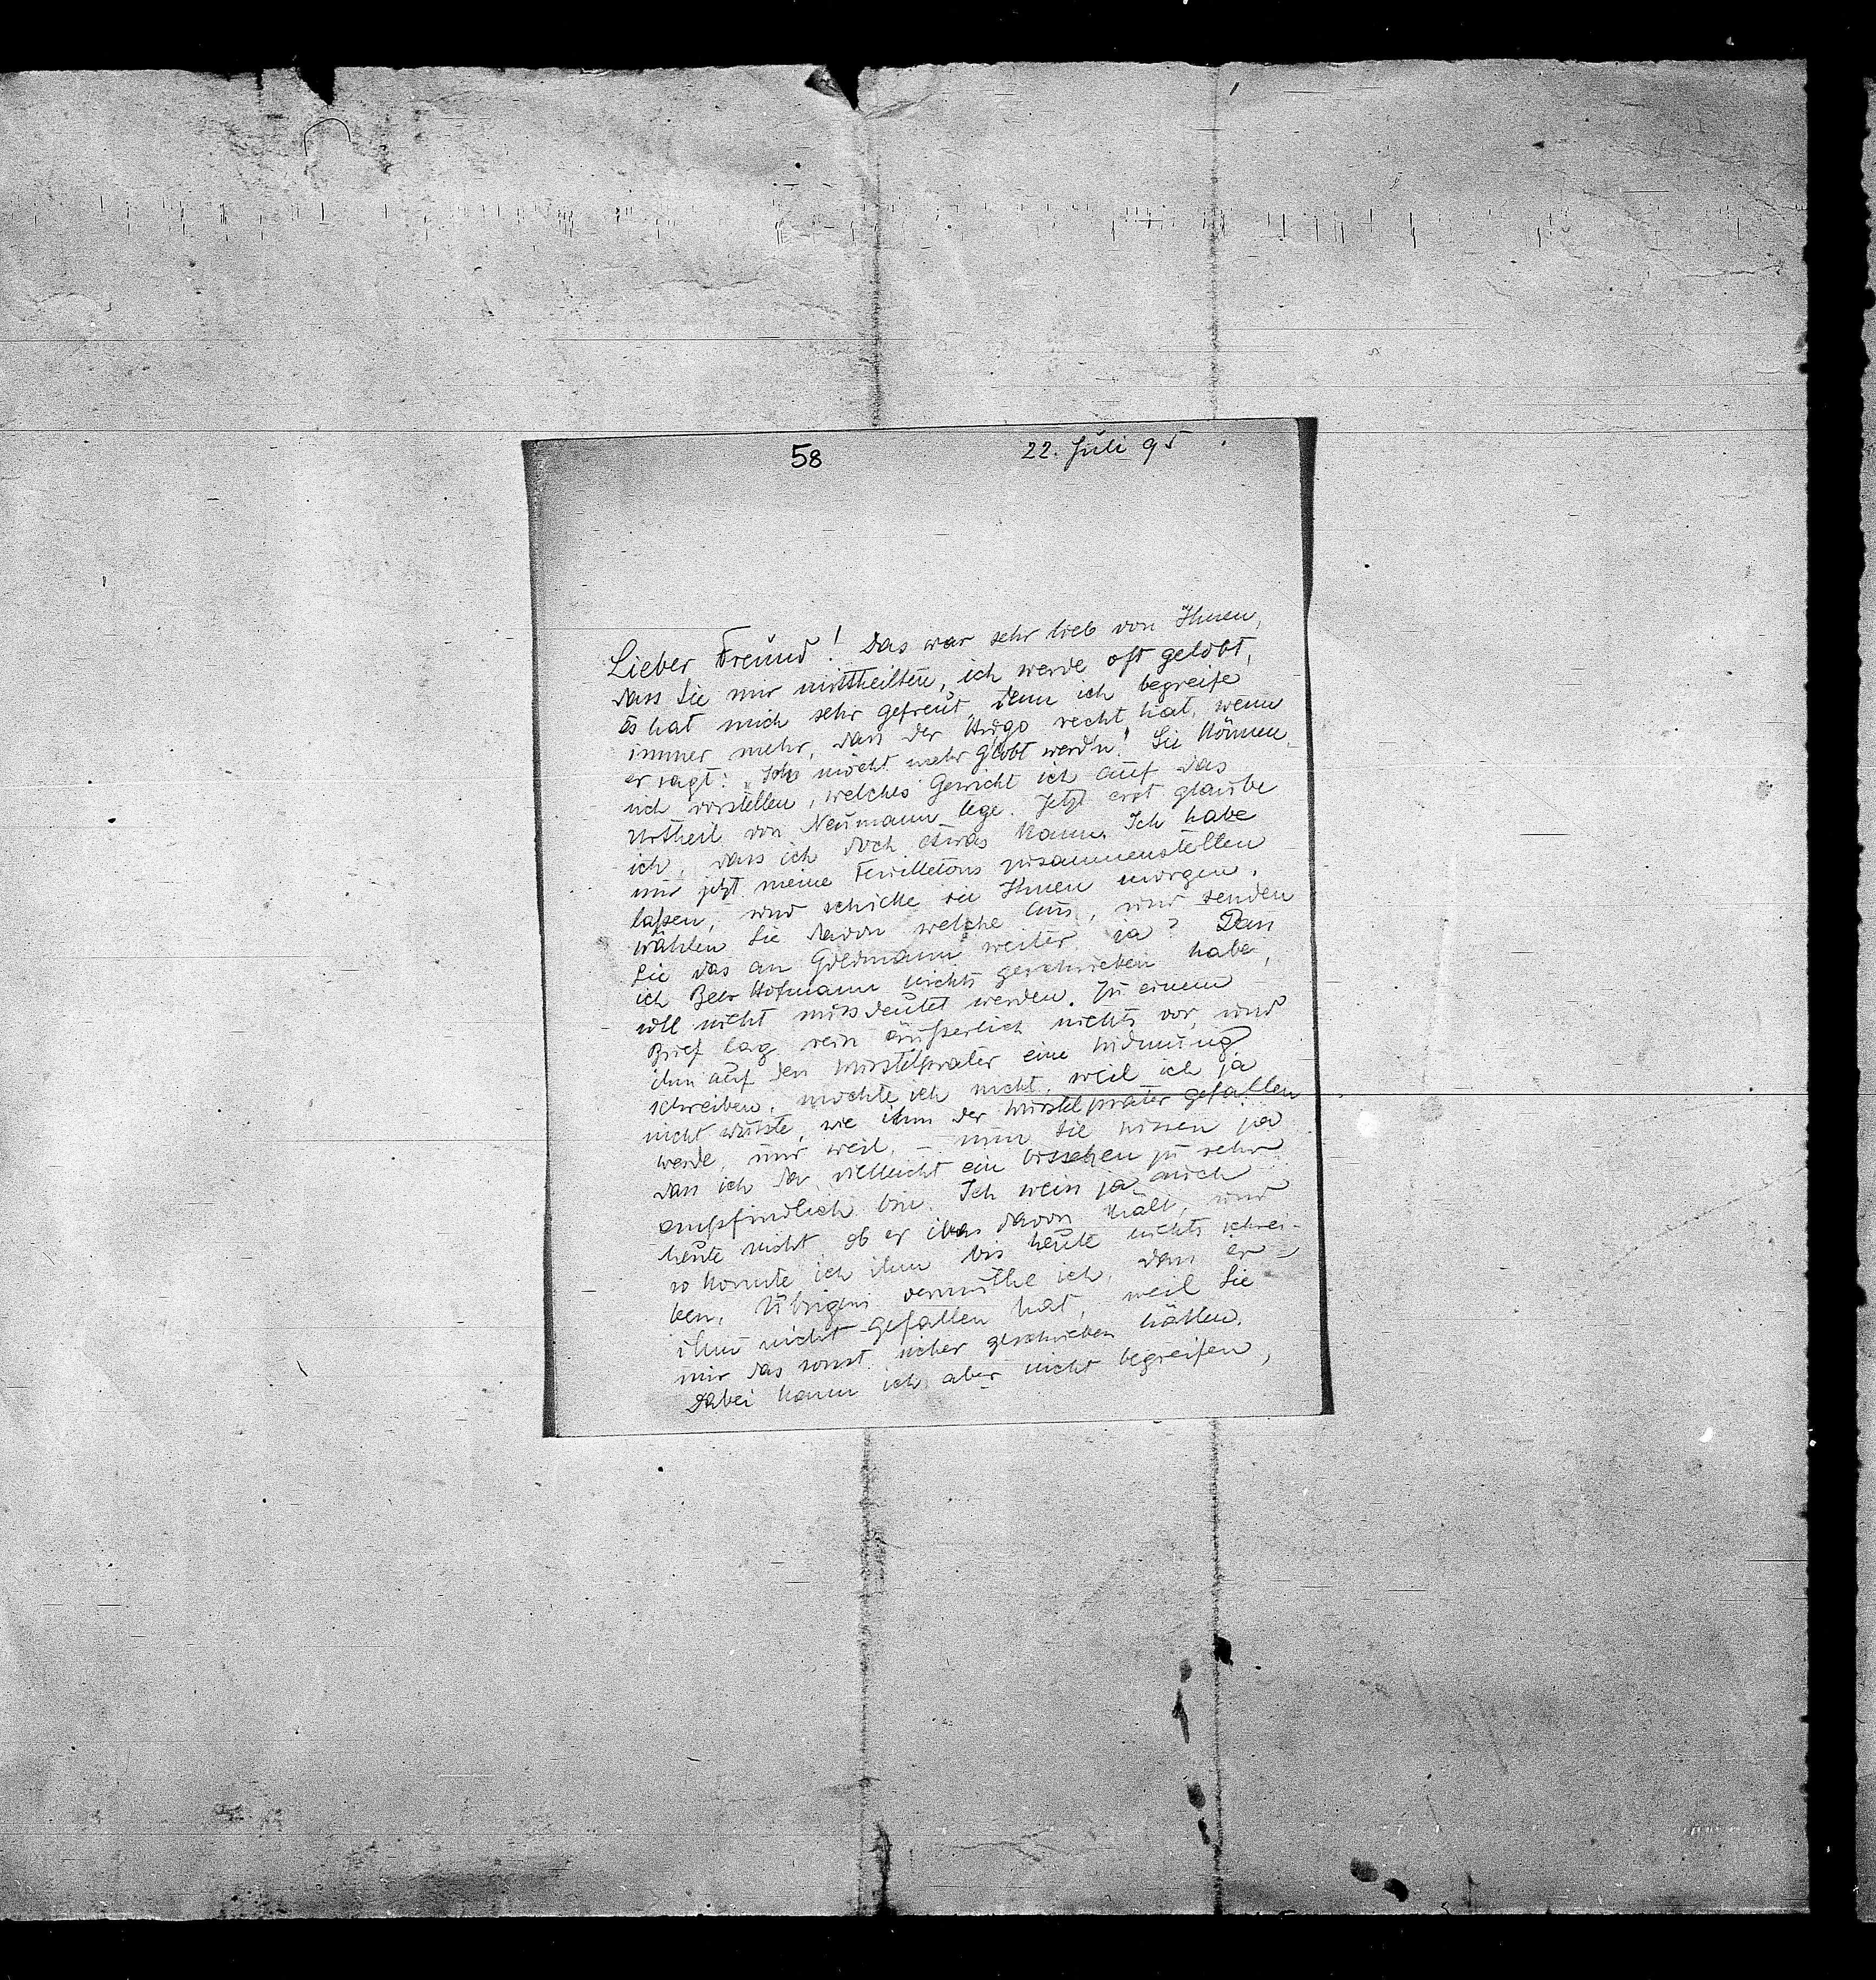 58
22. Juli 95
Lieber Freund! Das war sehr lieb von Ihnen,
dass Sie mir mittheilten, ich werde oft gelobt,
Es hat mich sehr gefreut, denn ich begreife
immer mehr, dass der Hugo recht hat, wenn
er sagt: „Ich möcht mehr g'lobt werd'n!" Sie können
sich vorstellen, welches Gewicht ich auf das
Urtheil von Neumann lege. Jetzt erst glaube
ich, dass ich doch etwas kann. Ich habe
mir jetzt meine Feuilletons zusammenstellen
laßen, und schicke sie Ihnen morgen.
Wählen Sie davon welche aus, und senden
Sie das an Goldmann weiter, ja? Dass
ich Beer Hofmann nichts geschrieben habe,
soll nicht missdeutet werden. Zu einem
Brief lag rein äußerlich nichts vor, und
ihm auf den Wurstelprater eine Widmung
schreiben, mochte ich nicht, weil ich ja
nicht wusste, wie ihm der Wurstelprater gefallen
werde, und weil, – nun Sie wissen ja
dass ich da vielleicht ein bisschen zu sehr
empfindlich bin. Ich weiss ja auch
heute nicht, ob er was davon hält, und
so konnte ich ihm bis heute nichts schrei-
ben. Übrigens vermuthe ich, dass er
ihm nicht gefallen hat, weil Sie
mir das sonst sicher geschrieben hätten.
Dabei kann ich aber nicht begreifen,